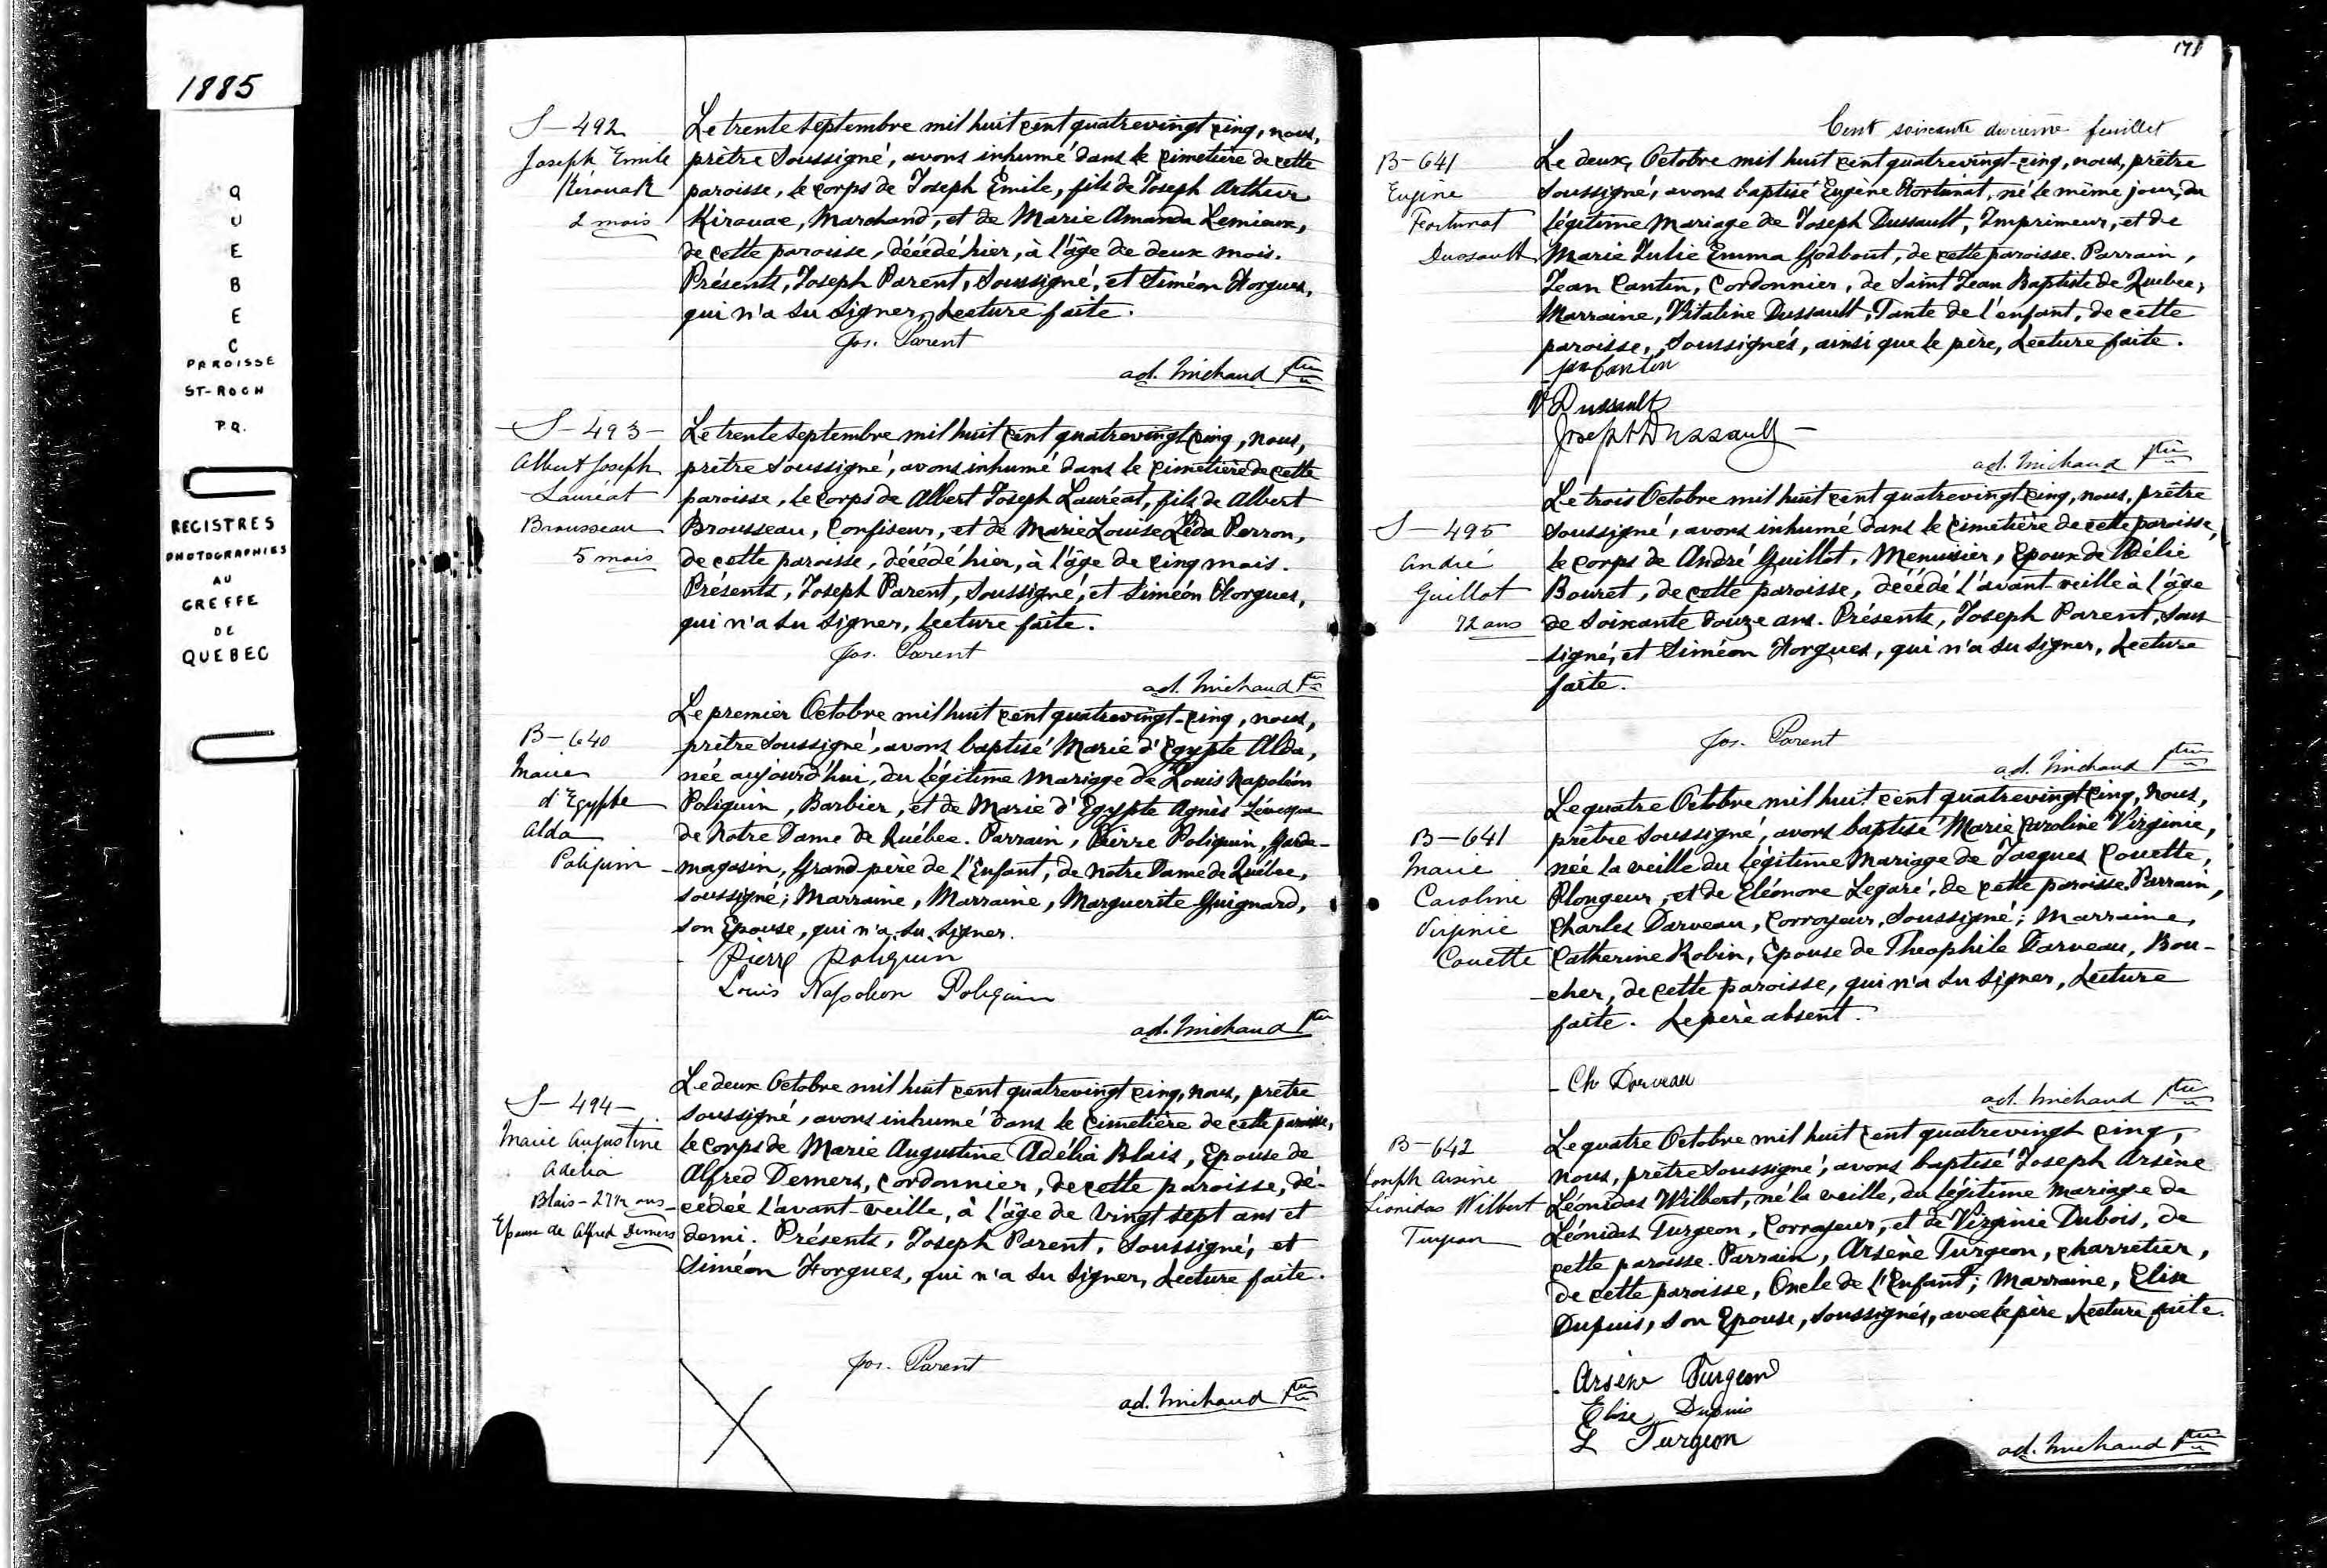 1885
QUEBEC
PAROISSE
ST-ROCH
P.Q.
REGISTRES
PHOTOGRAPHIES
AU
GREFFE
DE
QUEBEC
S-492
Joseph Emile
Kérouak
2 mois
Le trente septembre mil huit cent quatrevingt cinq, nous,
prêtre soussigné, avons inhumé dans le cimetière de cette
paroisse, le corps de Joseph Emile, fils de Joseph Arthur
Kirouac, Marchand, et de Marie Amanda Lemieux,
de cette paroisse, décédé hier, à l'âge de deux mois.
Présents, Joseph Parent, soussigné, et Siméon Horgues,
qui n'a su signer, Lecture faite.
Jos. Parent
ad. Michaud Ptre
S-493-
Albert Joseph
Lauréat
Brousseau
5 mois
Le trente septembre mil huit cent quatrevingt cinq, nous,
prêtre soussigné, avons inhumé dans le cimetière de cette
paroisse, le corps de Albert Joseph Lauréat, fils de Albert
Brousseau, Confiseur, et de Marie Louise Léda Perron,
de cette paroisse, décédé hier, à l'âge de cinq mois.
Présents, Joseph Parent, soussigné, et Siméon Horgues,
qui n'a su signer, lecture faite.
Jos. Parent
ad. Michaud Ptre
B-640
Marie
d'Egypte
Alda
Poliquin
Le premier Octobre mil huit cent quatrevingt-cinq, nous,
prêtre soussigné, avons baptisé Marie d'Egypte Alda,
née aujourd'hui, du légitime Mariage de Louis Napoléon
Poliquin, Barbier, et de Marie d'Egypte Agnès Lévesque
de Notre Dame de Québec. Parrain, Pierre Poliquin, Garde-
magasin, Grand père de l'Enfant, de Notre Dame de Québec,
soussigné; Marraine, Marraine, Marguerite Guignard,
son Epouse, qui n'a su signer.
Pierre Poliquin
Louis Napoleon Poliquin
ad. Michaud Ptre
S-494-
Marie Augustine
Adelia
Blais - 27½ ans
Epouse de Alfred Demers
Le deux Octobre mil huit cent quatrevingt cinq, nous, prêtre
soussigné, avons inhumé dans le cimetière de cette paroisse,
le corps de Marie Augustine Adélia Blais, Epouse de
Alfred Demers, cordonnier, de cette paroisse, dé-
cédée l'avant-veille, à l'âge de vingt sept ans et
demi. Présents, Joseph Parent, soussigné, et
Siméon Horgues, qui n'a su signer, Lecture faite.
Jos. Parent
ad. Michaud Ptre
171
Cent soixante onzieme feuillet
B-641
Eugene
Fortunat
Dussault
Le deux Octobre mil huit cent quatrevingt-cinq, nous, prêtre
soussigné, avons baptisé Eugène Fortunat, né le même jour, du
légitime Mariage de Joseph Dussault, Imprimeur, et de
Marie Julie Emma Godbout, de cette paroisse. Parrain,
Jean Cantin, Cordonnier, de Saint Jean Baptiste de Quebec,
Marraine, Vitaline Dussault, Tante de l'enfant, de cette
paroisse, soussignés, ainsi que le père, Lecture faite.
Jean Cantin
V Dussault
Joseph Dussault
ad. Michaud Ptre
S-495
André
Guillot
72 ans
Le trois Octobre mil huit cent quatrevingt cinq, nous, prêtre
soussigné, avons inhumé dans le cimetière de cette paroisse,
le corps de André Guillot, Menuisier, Epoux de Délie
Bouret, de cette paroisse, décédé l'avant-veille à l'âge
de soixante douze ans. Présents, Joseph Parent, sous
signé, et Siméon Horgues, qui n'a su signer, Lecture
faite.
Jos. Parent
ad. Michaud Ptre
B-641
Marie
Caroline
Virginie
Couette
Le quatre Octobre mil huit cent quatrevingt cinq, nous,
prêtre soussigné, avons baptisé Marie Caroline Virginie,
née la veille du légitime Mariage de Jacques Couette,
Plongeur, et de Eléonore Legaré, de cette paroisse. Parrain,
Charles Darveau, Corroyeur, soussigné; Marraine,
Catherine Robin, Epouse de Theophile Darveau, Bou-
cher, de cette paroisse, qui n'a su signer, Lecture
faite. Le père absent.
Ch Darveau
ad. Michaud Ptre
B-642
Joseph Arsène
Léonidas Wilbert
Turgeon
Le quatre Octobre mil huit cent quatrevingt cinq,
nous, prêtre soussigné, avons baptisé Joseph Arsène
Léonidas Wilbert, né la veille, du légitime mariage de
Léonidas Turgeon, Corroyeur, et de Virginie Dubois, de
cette paroisse. Parrain, Arsène Turgeon, charretier,
de cette paroisse, Oncle de l'Enfant; Marraine, Elise
Dupuis, son Epouse, soussignés, avec le père, Lecture faite.
Arsène Turgeon
Elise Dupuis
L Turgeon
ad. Michaud Ptre